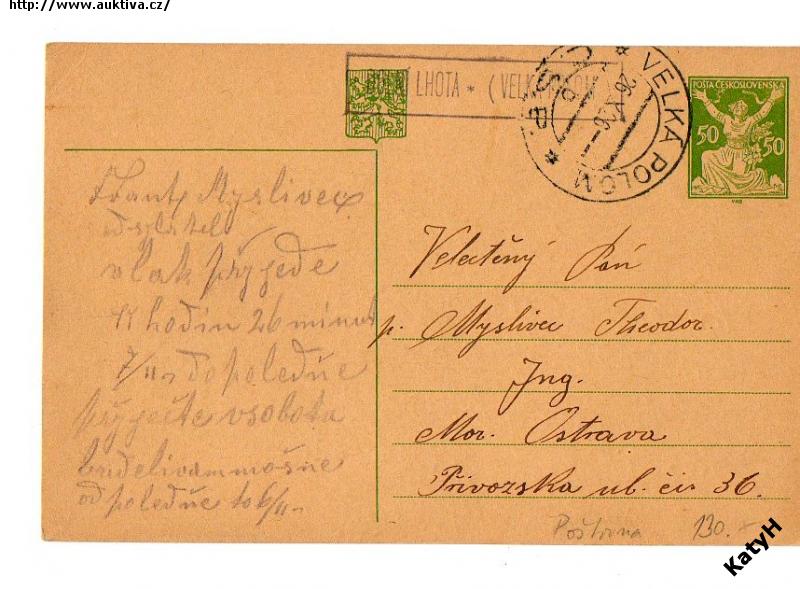 http://www.auktiva.cz/
LHOTA * (VELKÁ POLOM)
* VELKÁ POLOM *
POŠTA ČESKOSLOVENSKA
50 50
Frant Myslivec
odesilatel
vlak přyjede
11 hodin 26 minut
7/11 dopoledne
přyjeďte vsobotu
budelivammošne
odpoledne to 6/11
Velectěný Pan
p. Myslivec Theodor.
Jng.
Mor. Ostrava
Přivozska ul. čis 36.
Poštovna 130.-
KatyH